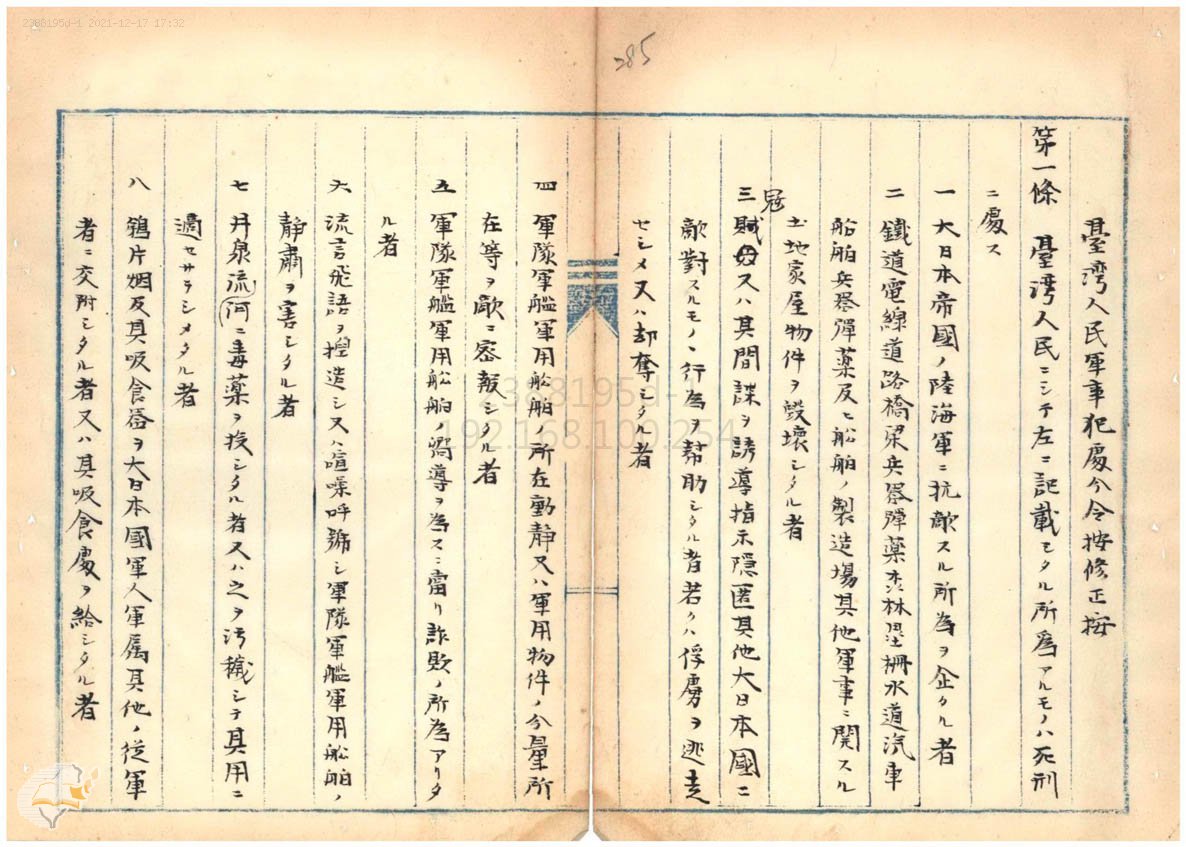 2388195d-1 2021-12-17 17:32
285
臺灣人民軍事犯處分令按修正按
第一條 臺灣人民ニシテ左ニ記載シタル所爲アルモノハ死刑
ニ處ス
一 大日本帝國ノ陸海軍ニ抗敵スル所為ヲ企タル者
二 鐵道電線道路橋梁兵器彈藥森林壘柵水道汽車
船舶兵器彈藥及ヒ船舶ノ製造場其他軍事ニ関スル
土地家屋物件ヲ毀壞シタル者
寇
三 賊又ハ其間諜ヲ誘導指示隠匿其他大日本國ニ
敵對スルモノヽ行為ヲ幇助シタル者若クハ俘虜ヲ逃走
セシメ又ハ却奪シタル者
四 軍隊軍艦軍用船舶ノ所在動静又ハ軍用物件ノ分量所
在等ヲ敵ニ密報シタル者
五 軍隊軍艦軍用船舶ノ嚮導ヲ為スニ當リ詐欺ノ所為アリタ
ル者
六 流言飛語ヲ捏造シ又ハ喧噪呼號シ軍隊軍艦軍用船舶ノ
静肅ヲ害シタル者
七 井泉流河ニ毒藥ヲ投シタル者又ハ之ヲ汚穢シテ其用ニ
適セサラシメタル者
八 鴉片烟及其吸食器ヲ大日本國軍人軍属其他ノ従軍
者ニ交附シタル者又ハ其吸食處ヲ給シタル者
2388195d-1
192.168.100.254